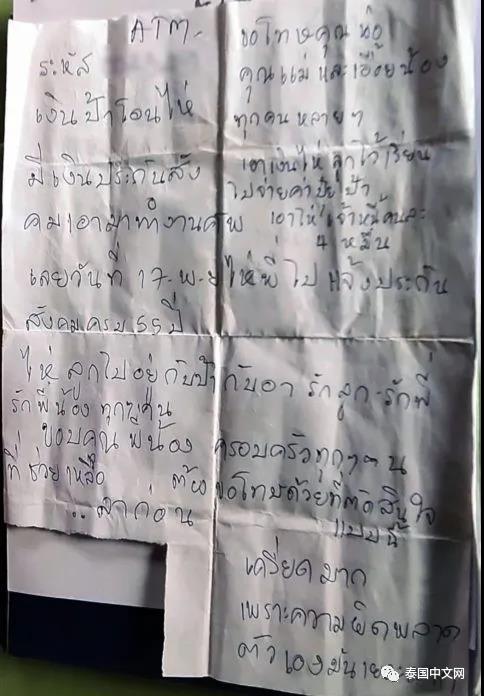 ATM-
ระหัส
เงินป้าโอนไห่
มีเงินประกันสัง
คมเอามาทำงานศพ
ขอโทษคุณพ่อ
คุณแม่ และเอื้อยน้อง
ทุกคน หลายๆ
เอาเงินไห่ ลูกไว้เรียน
ไปจ่ายค่าปุ๋ยป้า
เอาไห้เจ้าหนี้คนละ
4 หมื่น
เลยวันที่ 17-พ-ย ไห่พี่ไป แจ้งประกัน
สังคมครบ 55 ปี
ไห่ ลูกไปอยู่กับป้า กับอา รักลูก-รักพี่
รักพี่น้อง ทุกๆคน
ขอบคุณ พี่น้อง ครอบครัวทุกๆคน
ที่ช่วยเหลือ ต้องขอโทษด้วยที่ตัดสินใจ
..ลาก่อน แบบนี้
เครียดมาก
เพราะความผิดพลาด
ตัวเองมัน
泰国中文网